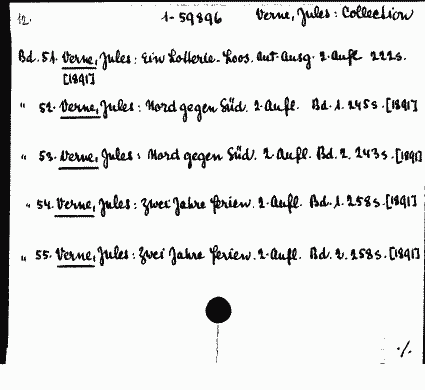 12. 1-59896 Verne, Jules: Collection
Bd. 51. Verne, Jules: Ein Lotterie-Loos. Aut. Ausg. 2. Aufl. 222s.
[1891]
" 52. Verne, Jules: Nord gegen Süd. 2. Aufl. Bd. 1. 245s. [1891]
" 53. Verne, Jules: Nord gegen Süd. 2. Aufl. Bd. 2. 243s. [1891]
" 54. Verne, Jules: Zwei Jahre Ferien. 2. Aufl. Bd. 1. 258s. [1891]
" 55. Verne, Jules: Zwei Jahre Ferien. 2. Aufl. Bd. 2. 258s. [1891]
./.